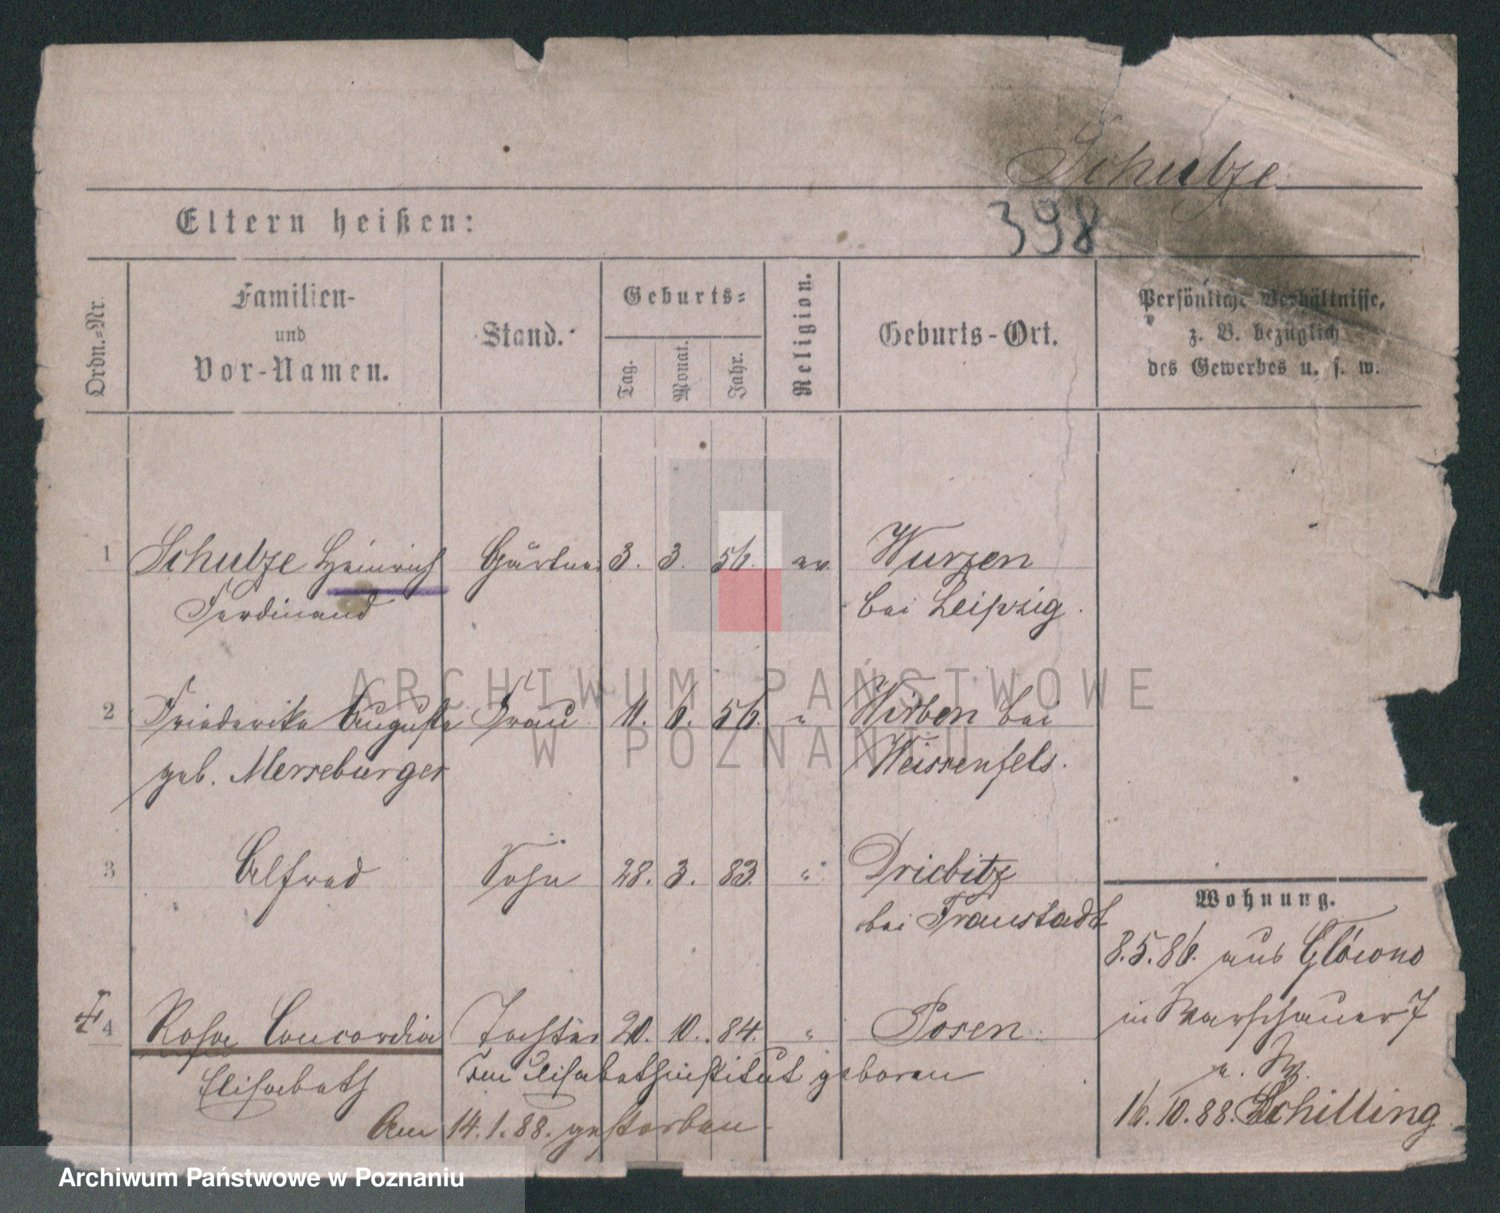 Schulze
398
Eltern heißen:
Ordn.-Nr.
Familien-
und
Vor-Namen.
Stand.
Geburts-
Tag.
Monat.
Jahr.
Religion.
Geburts-Ort.
Persönliche Verhältnisse,
z. B. bezüglich
des Gewerbes u. s. w.
1 Schulze Heinrich Gärtner 3. 3. 56. ev. Wurzen
Ferdinand bei Leipzig.
ARCHIWUM PAŃSTWOWE
W POZNANIU
2 Friederike Auguste Frau 11. 6. 56. " Wirben bei
geb. Merseburger Weissenfels.
3 Alfred Sohn 28. 3. 83. " Driebitz
bei Fraustadt
Wohnung.
8.5.86. aus Glowno
in Warschauer 7
4 Rosa Concordia Tochter 20. 10. 84. " Posen
Elisabeth Im Elisabethinstitut geboren
Am 14.1.88. gestorben.
16.10.88. Schilling
Archiwum Państwowe w Poznaniu